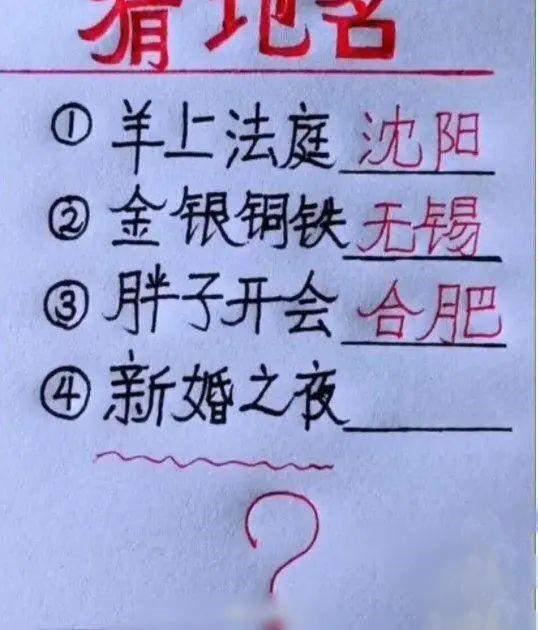 猜地名
①羊上法庭 沈阳
②金银铜铁 无锡
③胖子开会 合肥
④新婚之夜
?